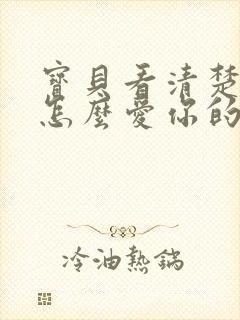 寶貝看清楚
怎麼愛你的
冷油熱鍋